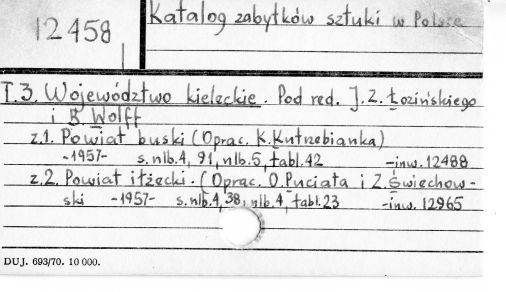 12458
Katalog zabytków sztuki w Polsce
T.3. Województwo kieleckie. Pod red. J. Z. Łozińskiego
i B. Wolff
z.1. Powiat buski (Oprac. K. Kutrzebianka)
-1957- s.nlb.4, 91, nlb.5, tabl.42 -inw.12488
z.2. Powiat iłżecki. (Oprac. O. Puciata i Z. Świechow-
ski -1957- s.nlb.4, 38, nlb.4, tabl.23 -inw. 12965
DUJ. 693/70. 10 000.